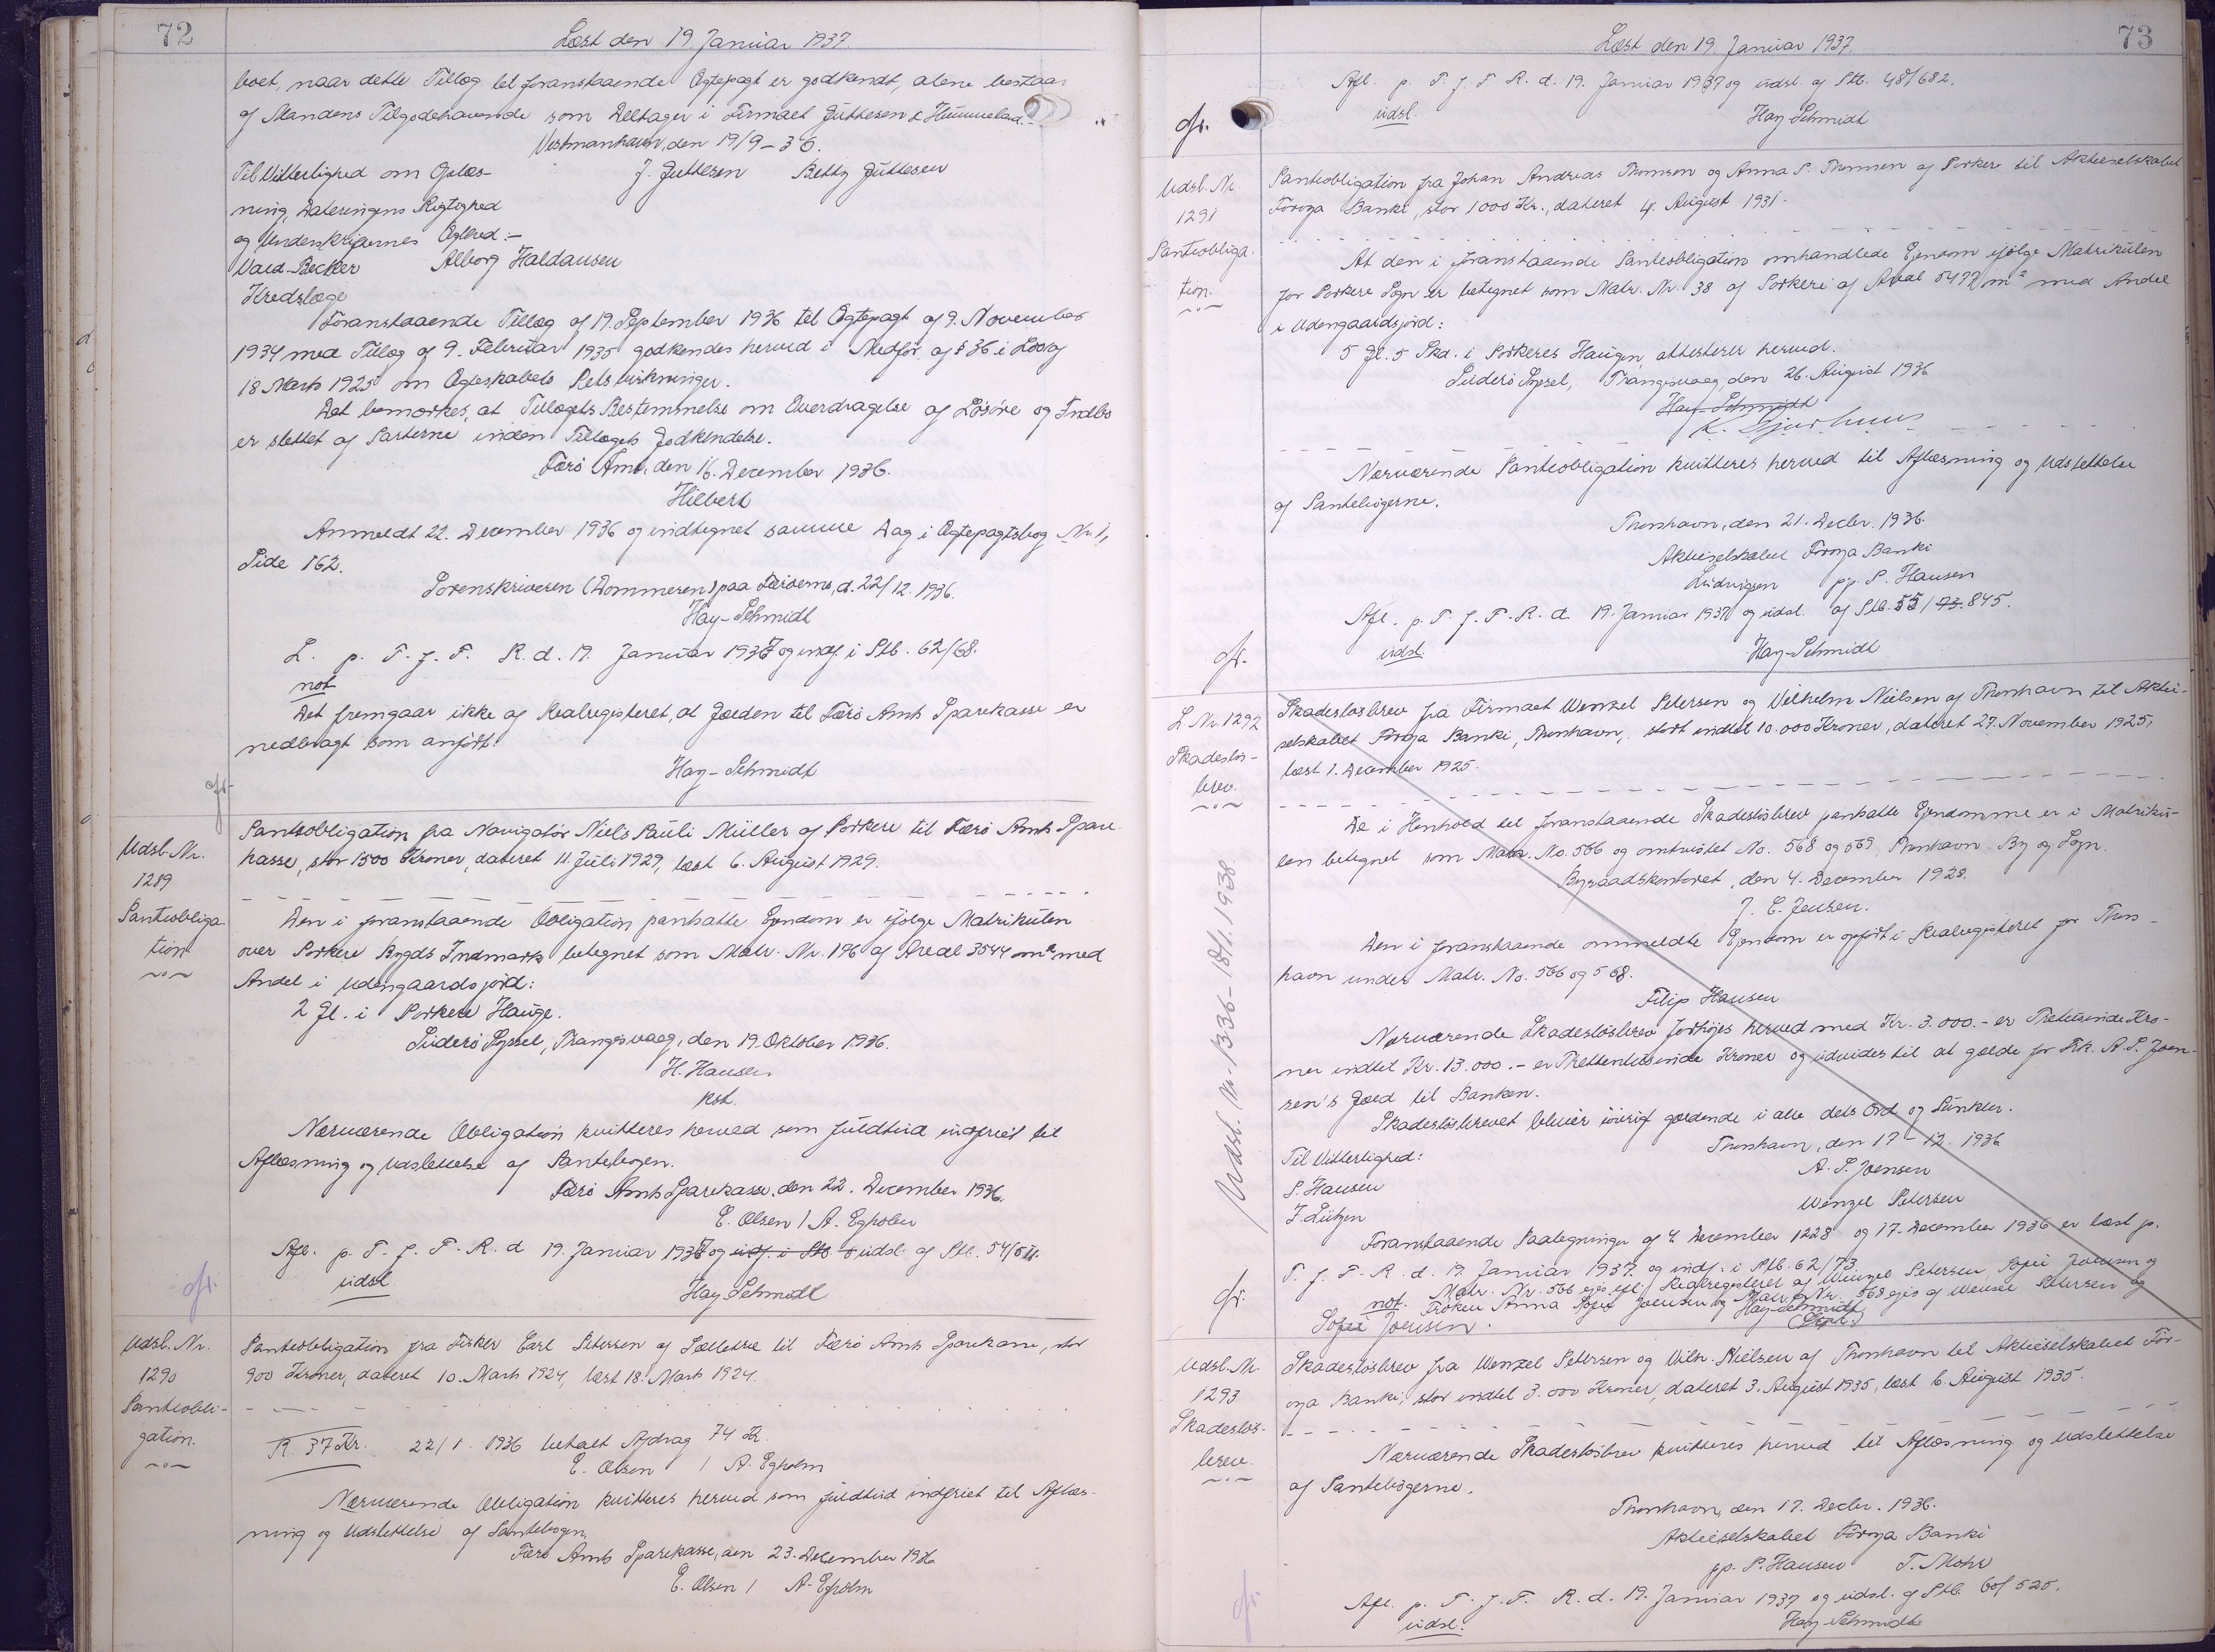 72
Læst den 19 Januar 1937.
boet, naar dette Tillæg til foranstaaende Ægtepagt er godkendt, alene bestaar
af Mandens Tilgodehavende som Deltager i Firmaet Guttesen & Hummeland.
Vestmanhavn, den 19/9-36.
Til Vitterlighed om Oplæs- J. Guttesen Betty Guttesen
ning, Dateringens Rigtighed
og Underskrifternes Ægthed:-
Vald. Becker Alborg Haldansen
Kredslæge
Foranstaaende Tillæg af 19. September 1936 til Ægtepagt af 9. November
1934 med Tillæg af 9. Februar 1935 godkendes herved i Medfør af § 36 i Lov af
18 Marts 1925 om Ægteskabets Retsvirkninger.
Det bemærkes, at Tillægets Bestemmelse om Overdragelse af Løsøre og Indbo
er slettet af Parterne inden Tillægets Godkendelse.
Færø Amt, den 16. December 1936.
Hilbert
Anmeldt 22. December 1936 og indtegnet samme Dag i Ægtepagtsbog Nr. 1,
Side 162.
Sorenskriveren (Dommeren) paa Færøerne, d. 22/12. 1936.
Hay-Schmidt
L. p. T. f. F. R. d. 19. Januar 1937 og indf. i Ptb. 62/68.
not
Det fremgaar ikke af Realregisteret, at Gælden til Færø Amts Sparekasse er
nedbragt som anført.
Hay-Schmidt
Udsl. Nr.
1289
Panteobliga-
tion
Panteobligation fra Navigatør Niels Pauli Müller af Porkere til Færø Amts Spare-
kasse, stor 1500 Kroner, dateret 11. Juli 1929, læst 6. August 1929.
Den i foranstaaende Obligation pantsatte Ejendom er ifølge Matrikulen
over Porkere Bygds Indmark betegnet som Matr. Nr. 196 af Areal 3544 m² med
Andel i Udengaardsjord:
2 Gl. i Porkere Hauge.
Suderø Syssel, Trangisvaag, den 19. Oktober 1936.
H. Hansen
kst.
Nærværende Obligation kvitteres herved som fuldtud indfriet til
Aflæsning og Udslettelse af Pantebogen.
Færø Amts Sparekasse, den 22. December 1936.
E. Olsen / A. Egholm
Afl. p. T. f. F. R. d 19. Januar 1937 og indf. i Ptb. udsl. af Ptb. 54/511.
udsl. Hay Schmidt
Udsl. Nr.
1290
Panteobli-
gation.
Panteobligation fra Fisker Carl Petersen af Selletræ til Færø Amts Sparekasse, stor
900 Kroner, dateret 10. Marts 1924, læst 18. Marts 1924.
R. 37 Kr. 22/1. 1936 betalt Afdrag 74 Kr.
E. Olsen / A. Egholm
Nærværende Obligation kvitteres herved som fuldtud indfriet til Aflæs-
ning og Udslettelse af Pantebogen.
Færø Amts Sparekasse, den 23. December 1936
E. Olsen / A. Egholm
73
Læst den 19. Januar 1937.
Afl. p. T. f. F. R. d. 19. Januar 1937 og udsl. af Ptb. 48/682.
udsl. Hay-Schmidt
Udsl. Nr
1291
Panteobliga-
tion.
Panteobligation fra Johan Andreas Thomsen og Anna S. Thomsen af Porkere til Aktieselskabet
Føroya Banki, stor 1000 Kr., dateret 4. August 1931.
At den i foranstaaende Panteobligation omhandlede Ejendom ifølge Matrikulen
for Porkere Sogn er betegnet som Matr. Nr. 38 af Porkere af Areal 5472 m² med Andel
i Udengaardsjord:
5 Gl. 5 Skd. i Porkeres Haugen, attesteres herved.
Suderø Syssel, Trangisvaag, den 26. August 1936
Hay-Schmidt
K. Djurhuus
Nærværende Panteobligation kvitteres herved til Aflæsning og Udslettelse
af Pantebøgerne.
Thorshavn, den 21. Decbr. 1936.
Aktieselskabet Føroya Banki
Ludvigsen pp. P. Hansen
Afl. p. T. f. F. R. d. 19. Januar 1937 og udsl. af Ptb. 55/73. 845.
udsl. Hay-Schmidt
L Nr. 1292
Skadesløs-
brev.
Udsl. Nr. 1336 - 18/1. 1938.
Skadesløsbrev fra Firmaet Wenzel Petersen og Vilhelm Nielsen af Thorshavn til Aktie-
selskabet Føroya Banki, Thorshavn, stort indtil 10.000 Kroner, dateret 27. November 1925,
læst 1. December 1925.
De i Henhold til foranstaaende Skadesløsbrev pantsatte Ejendomme er i Matriku-
len betegnet som Matr. No. 566 og omtvistet No. 568 og 569 Thorshavn By og Sogn.
Byraadskontoret, den 4. December 1928.
J. C. Jensen.
Den i foranstaaende ommeldte Ejendom er opført i Realregisteret for Thors-
havn under Matr. No. 566 og 568.
Filip Hansen
Nærværende Skadesløsbrev forhøjes herved med Kr. 3.000.- er Tretusinde Kro-
ner indtil Kr. 13.000.- er Trettentusinde Kroner og udvides til at gælde for Frk. A. S. Joen-
sen's Gæld til Banken.
Skadesløsbrevet bliver iøvrigt gældende i alle dets Ord og Punkter.
Til Vitterlighed: Thorshavn, den 17-12. 1936
P. Hansen A. S. Joensen
J. Lützen Wenzel Petersen
Foranstaaende Paategninger af 4. December 1228 og 17. December 1936 er læst p.
T. f. F. R. d. 19. Januar 1937 og indf. i Ptb. 62/73.
not. Matr. Nr. 566 ejes ifl. Realregisteret af Wenzel Petersen, Sofie Joensen og
Frøken Anna Sofie Joensen og Matr. Nr. 568 ejes af Wenzel Petersen og
Sofie Joensen. Hay-Schmidt
Udsl. Nr.
1293
Skadesløs-
brev.
Skadesløsbrev fra Wenzel Petersen og Vilh. Nielsen af Thorshavn til Aktieselskabet Før-
oya Banki, stor indtil 3.000 Kroner, dateret 3. August 1935, læst 6. August 1935.
Nærværende Skadesløsbrev kvitteres herved til Aflæsning og Udslettelse
af Pantebøgerne.
Thorshavn, den 17. Decbr. 1936.
Aktieselskabet Føroya Banki
pp. P. Hansen T. Mohr
Afl. p. T. f. F. R. d. 19. Januar 1937 og udsl. af Ptb. 60/525.
udsl. Hay-Schmidt